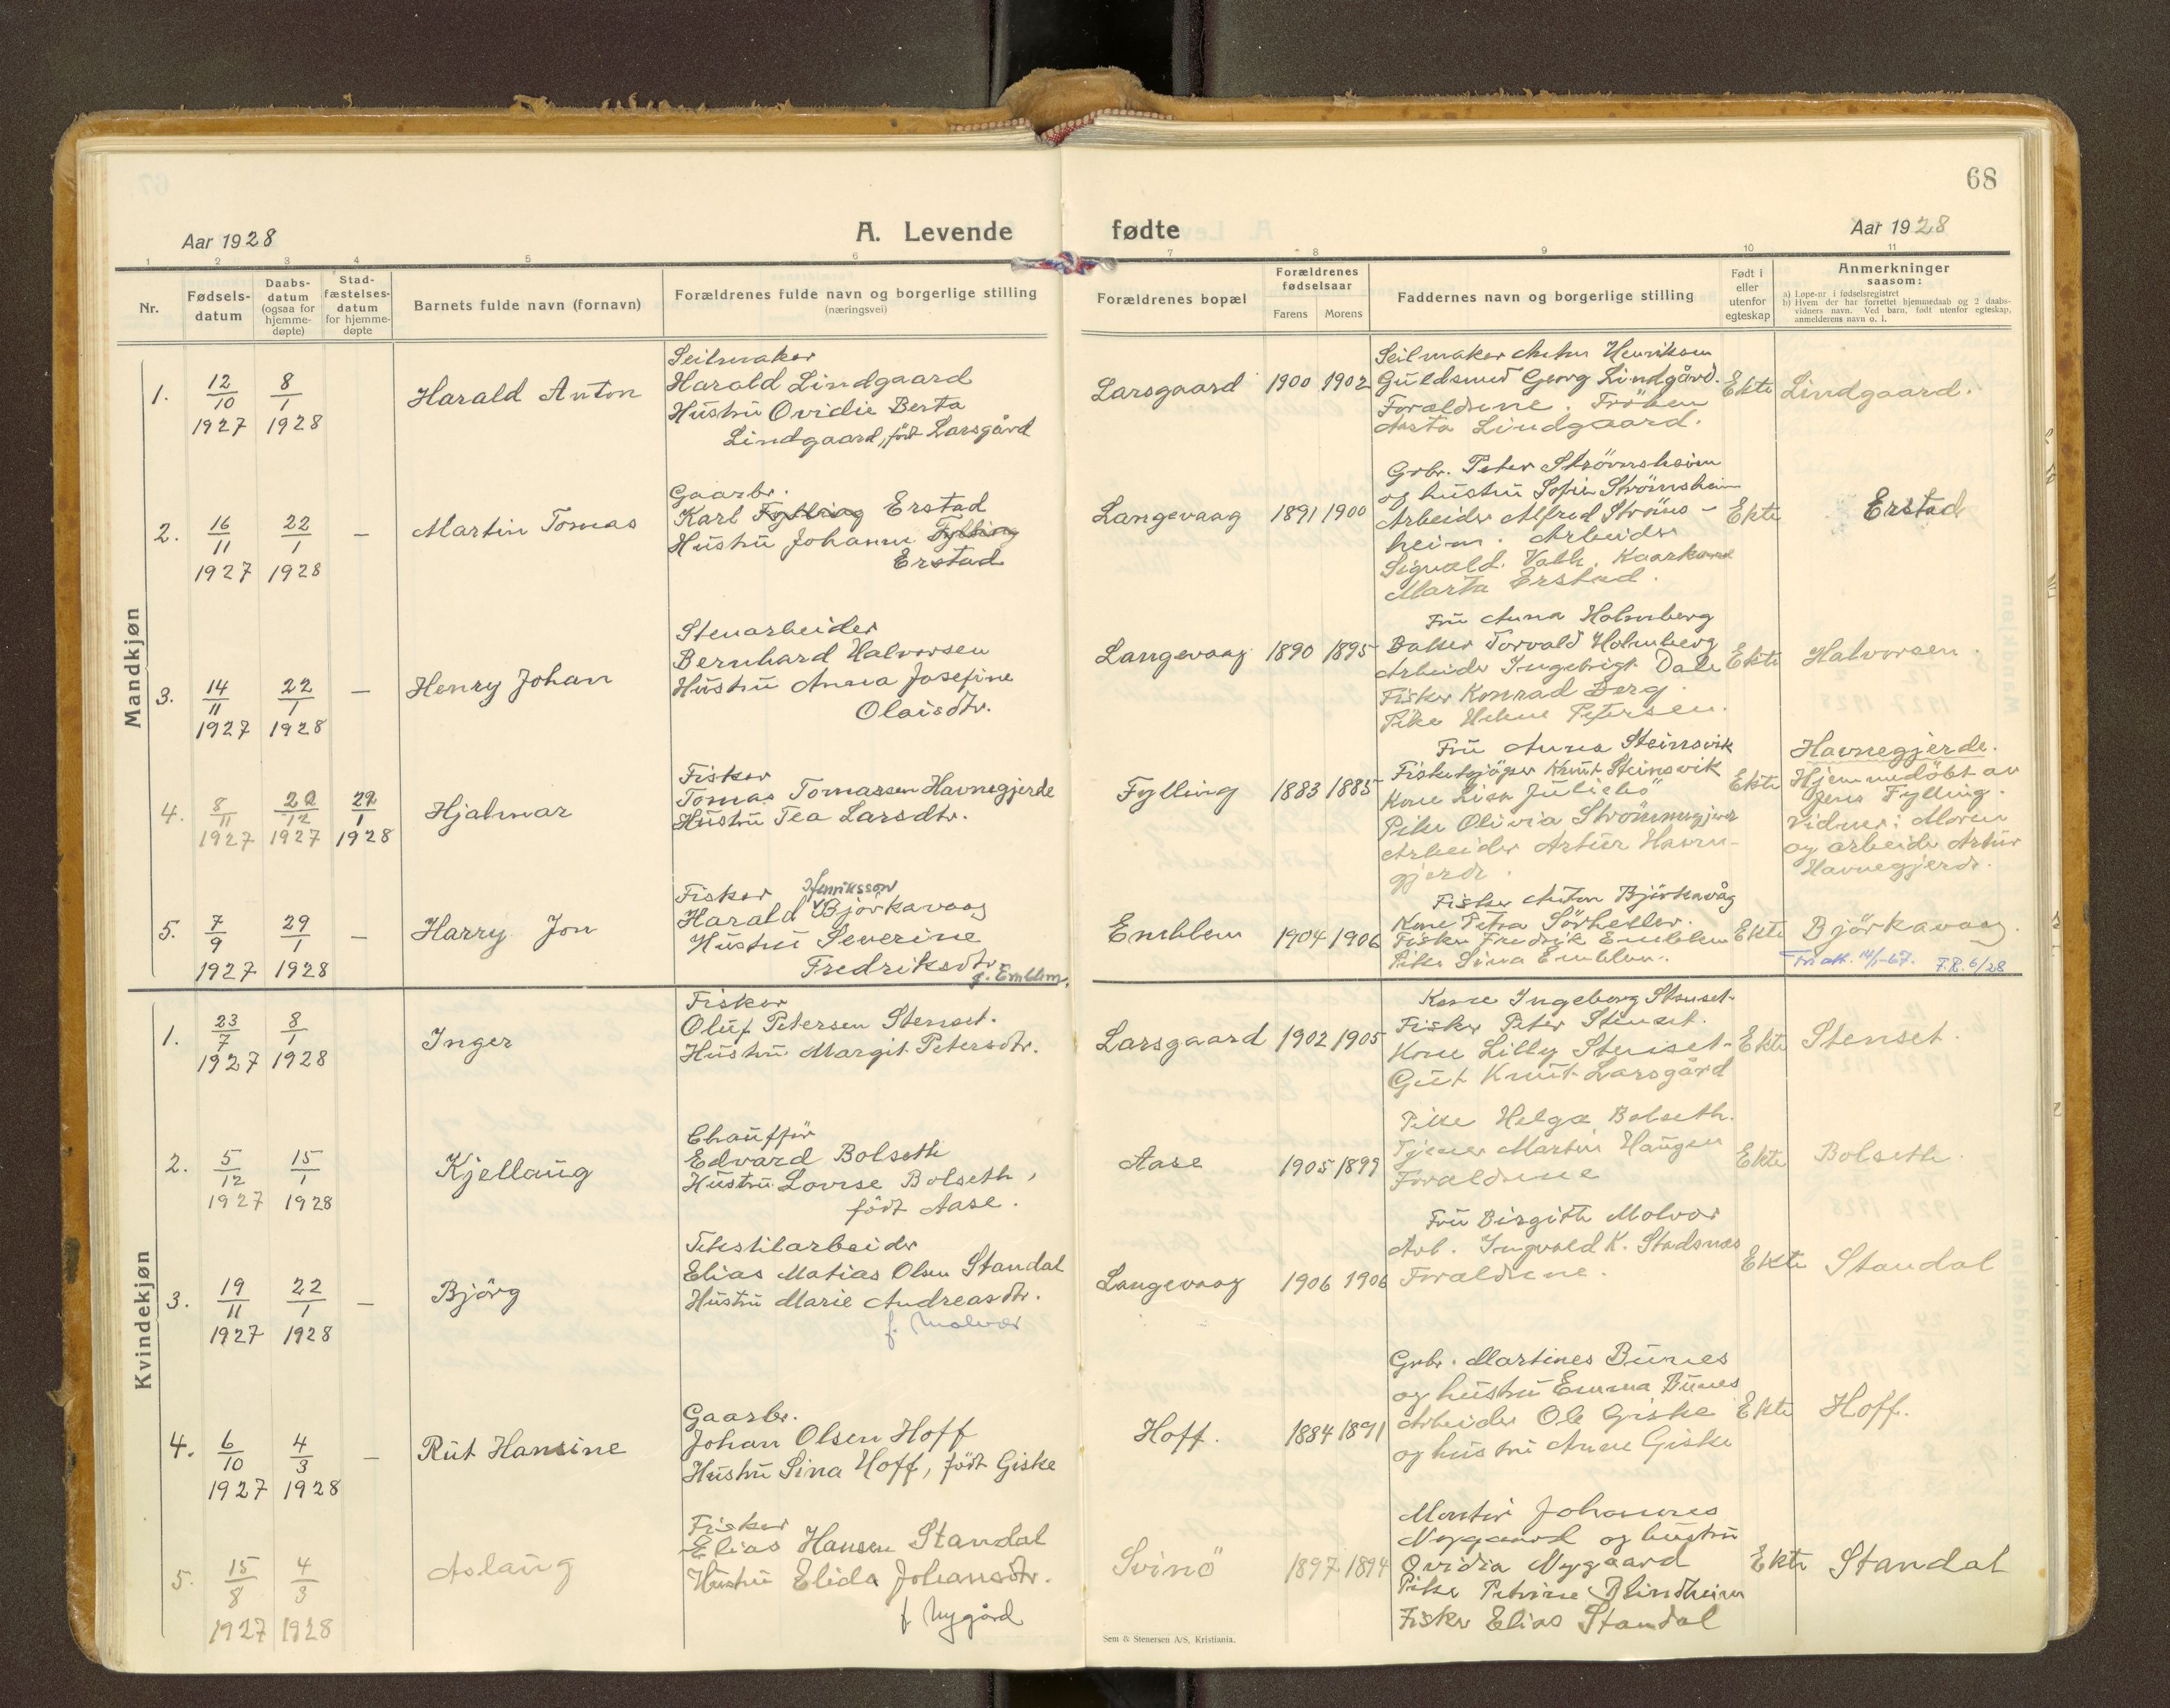 68
Aar 1928
A. Levende
fødte
Aar 1928
1 2 3 4 5 6 7 8 9 10 11
Nr.
Fødsels-
datum
Daabs-
datum
(ogsaa for
hjemme-
døpte)
Stad-
fæstelses-
datum
for hjemme-
døpte
Barnets fulde navn (fornavn)
Forældrenes fulde navn og borgerlige stilling
(næringsvei)
Forældrenes bopæl
Forældrenes
fødselsaar
Farens Morens
Faddernes navn og borgerlige stilling
Født i
eller
utenfor
egteskap
Anmerkninger
saasom:
a) Løpe-nr i fødselsregistret
b) Hvem der har forrettet hjemmedaab og 2 daabs-
vidners navn. Ved barn, født utenfor egteskap,
anmelderens navn o. l.
Mandkjøn
1. 12/10 1927 8/1 1928
Harald Anton
Seilmaker
Harald Lindgaard
Hustru Ovidie Berta
Lindgaard, født Larsgård
Larsgaard 1900 1902
Seilmaker Anton Henriksen
Guldsmed Georg Lindgård.
Foraldrene. Fröken
Asta Lindgaard.
Ekte
Lindgaard.
2. 16/11 1927 22/1 1928 –
Martin Tomas
Gaarbr.
Karl Fylling Erstad
Hustru Johanne Fylling
Erstad
Langevaag 1891 1900
Grbr. Peter Strömsheim
og hustru Sofie Strömsheim
Arbeider Alfred Ströms-
heim. Arbeider
Sigvald
Marta Erstad.
Ekte
Erstad
3. 14/11 1927 22/1 1928 –
Henry Johan
Stenarbeider
Bernhard Halvorsen
Hustru Anna Josefine
Olaisdtr.
Langevaag 1890 1895
Fru Anna Holmberg
Baker Torvald Holmberg
Arbeider Ingebrigt Dale
Fisker Konrad Berg.
Pike Helene Petersen.
Ekte
Halvorsen.
4. 8/11 1927 22/12 1927 22/1 1928
Hjalmar
Fisker
Tomas Tomassen Havnegjerde
Hustru Tea Larsdtr.
Fylling 1883 1885
Fru Anna Steinsvik
Knut Steinsvik
Kone Lisa Juliebö
Pike Olivia
Arbeider Artur Havne-
gjerde.
Ekte
Havnegjerde.
Hjemmedöbt av
Jens Fylling.
Vidner: Moren
og arbeider Artur
Havnegjerde.
5. 7/9 1927 29/1 1928 –
Harry Jon
Fisker Henriksson
Harald Björkavaag
Hustru Severine
Fredriksdtr.
f. Emblem.
Emblem 1904 1906
Fisker Anton Björkavåg
Kone Petra Sörheller.
Fisker Fredrik Emblem
Pike Lina Emblem.
Ekte
Björkavaag.
Fri att. 14/1-67. F.R. 6/28
Kvindekjøn
1. 23/7 1927 8/1 1928
Inger
Fisker
Oluf Petersen Stenset.
Hustru Margit Petersdtr.
Larsgaard 1902 1905
Kone Ingeborg Stenset.
Fisker Peter Stenset.
Kone Lilly Stenset.
Gut Knut Larsgård
Ekte
Stenset.
2. 5/12 1927 15/1 1928
Kjellaug
Chauffør
Edvard Bolseth
Hustru Lovise Bolseth,
født Aase.
Aase 1905 1899
Pike Helga Bolseth.
Tjener Martin Haugen
Foraldrene
Ekte
Bolseth.
3. 19/11 1927 22/1 1928 –
Björg
Tekstilarbeider
Elias Matias Olsen Standal
Hustru Marie Andreasdtr.
f. Molvær
Langevaag 1906 1906
Fru Birgith Molvær
Arb. Ingvald K. Stadsnes
Foraldrene.
Ekte
Standal
4. 6/10 1927 4/3 1928 –
Rut Hansine
Gaarbr.
Johan Olsen Hoff
Hustru Sina Hoff, født Giske
Hoff. 1884 1891
Grbr. Martines Bunes
og hustru Emma Bunes
Arbeider Ole Giske
og hustru Anne Giske
Ekte
Hoff.
5. 15/8 1927 4/3 1928
Aslaug
Fisker
Elias Hansen Standal
Hustru Elida Johansdtr.
f. Nygård
Svinö 1897 1894
Montør Johannes
Nygaard og hustru
Ovidia Nygaard
Pike Petrine Blindheim
Fisker Elias Standal
Ekte
Standal
Sem & Stenersen A/S, Kristiania.